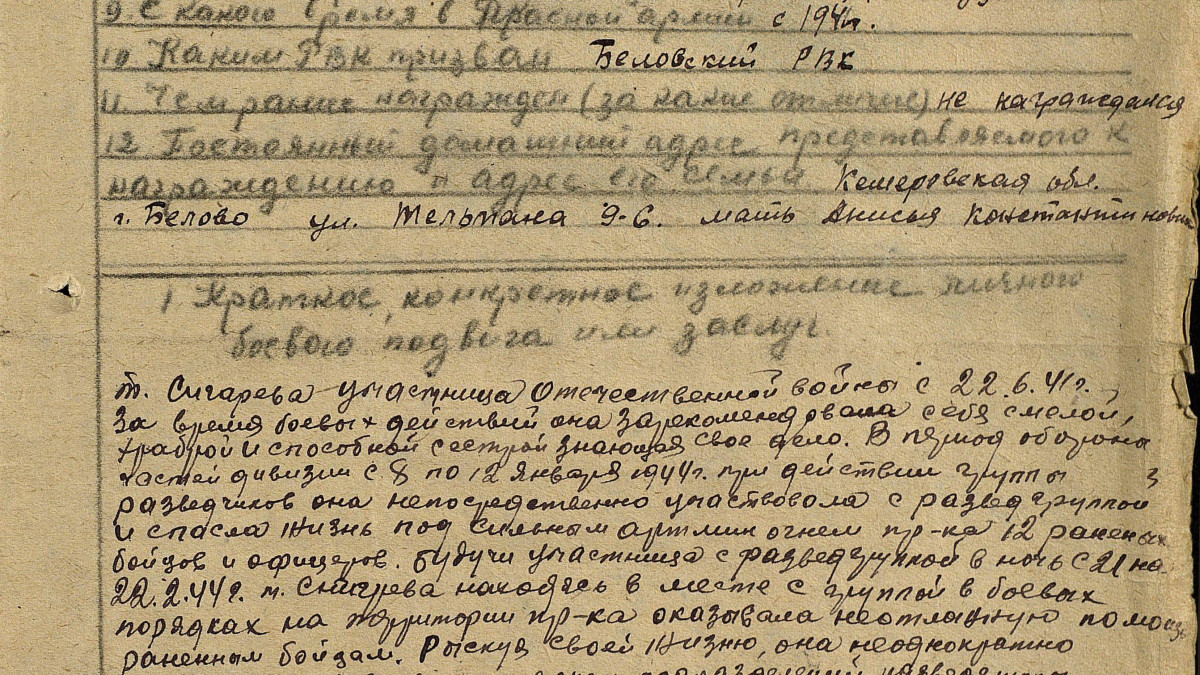 9 С какого времени в Красной армии с 1941г.
10 Каким РВК призван Беловский РВК
11. Чем ранее награжден (за какие отличие) не награждался
12 Постоянный домашний адрес представляемого к
награждению и адрес его семьи Кемеровская обл.
г. Белово ул. Тельмана 9-6. мать Анисья Константинов
1 Краткое, конкретное изложение личного
боевого подвига или заслуг.
т. Сигарева участница Отечественной войны с 22.6.41г.
За время боевых действий она зарекомендовала себя смелой,
храброй и способной сестрой знающая свое дело. В период обороны
частей дивизии с 8 по 12 января 1944г. при действии группы
разведчиков она непосредственно участвовала с разведгруппой
и спасла жизнь под сильным артмин огнем пр-ка 12 раненых
бойцов и офицеров. Будучи участница с разведгруппой в ночь с 21 на
22.2.44г. т. находясь в месте с группой в боевых
порядках на территории пр-ка оказывала неотложную помощь
раненным бойцам. Рыскуя своей жизню, она неоднократно